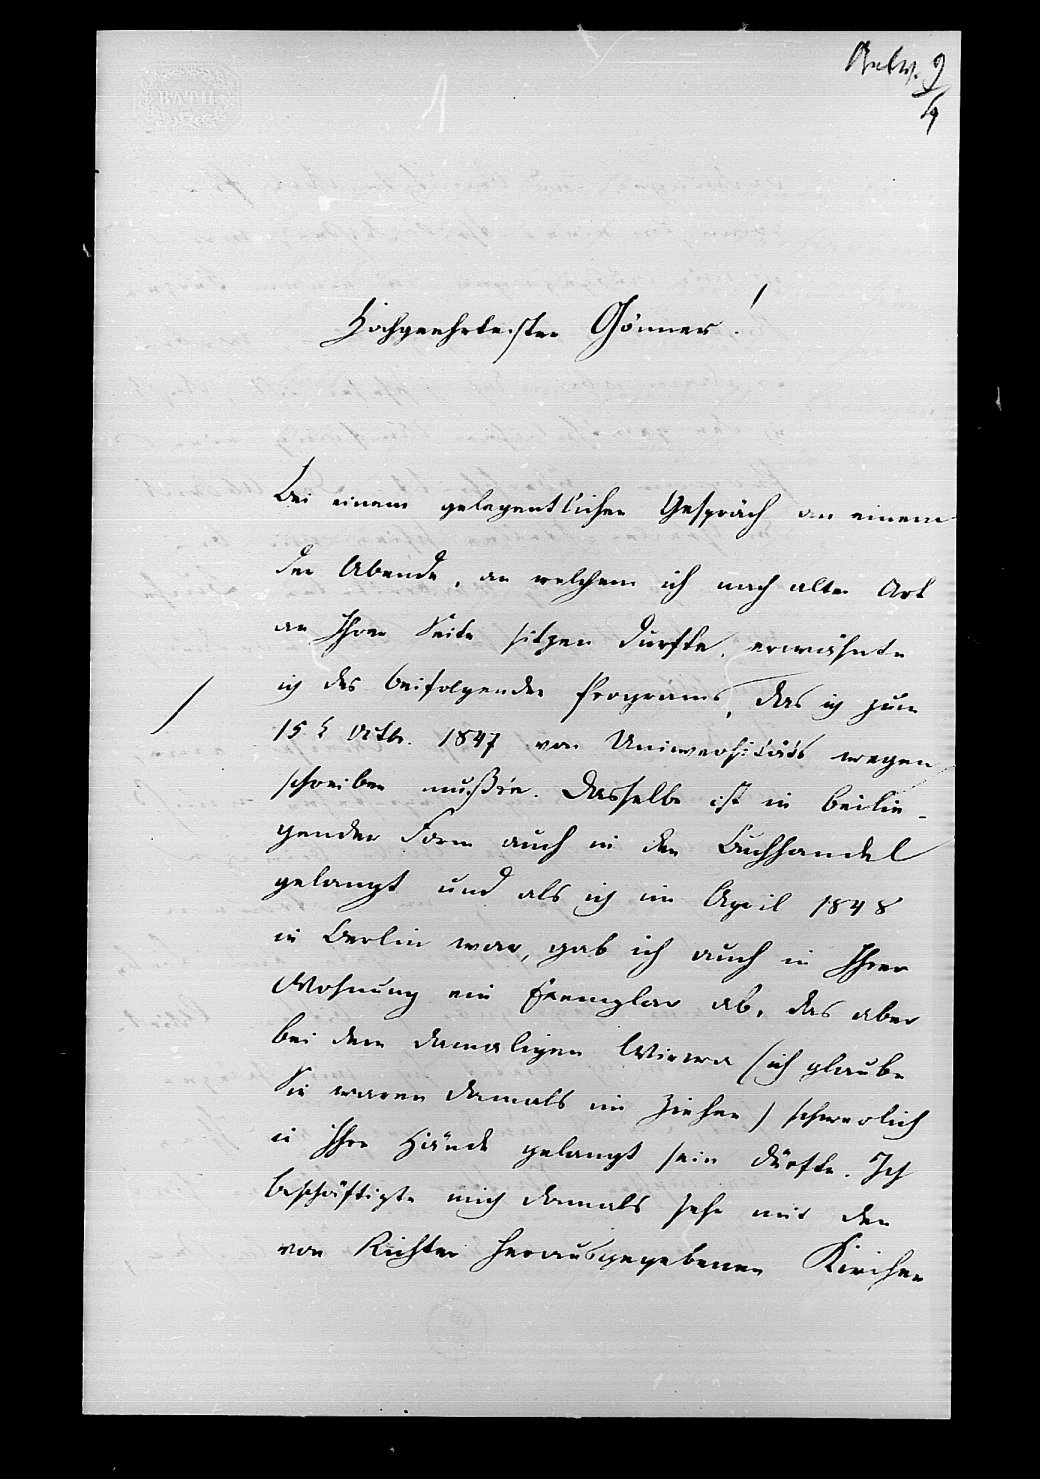 Antw. 9/4
BATH
Hochgeehrtester Gönner!
Bei einem gelegentlichen Gespräch an einem
der Abende, an welchem ich nach alter Art
an Ihrer Seite sitzen durfte, erwähnte
ich des beifolgenden Programs, das ich zum
15 t Octbr. 1847 von Universitäts wegen
schreiben mußte. Dasselbe ist in beilie-
gender Form auch in den Buchhandel
gelangt und als ich im April 1848
in Berlin war, gab ich auch in Ihrer
Wohnung ein Exemplar ab, das aber
bei dem damaligen Wirrwa (ich glaube
Sie waren damals im Ziehen) schwerlich
in Ihre Hände gelangt sein dürfte. Ich
beschäftigte mich damals sehr mit den
von Richter herausgegebenen Kirchen